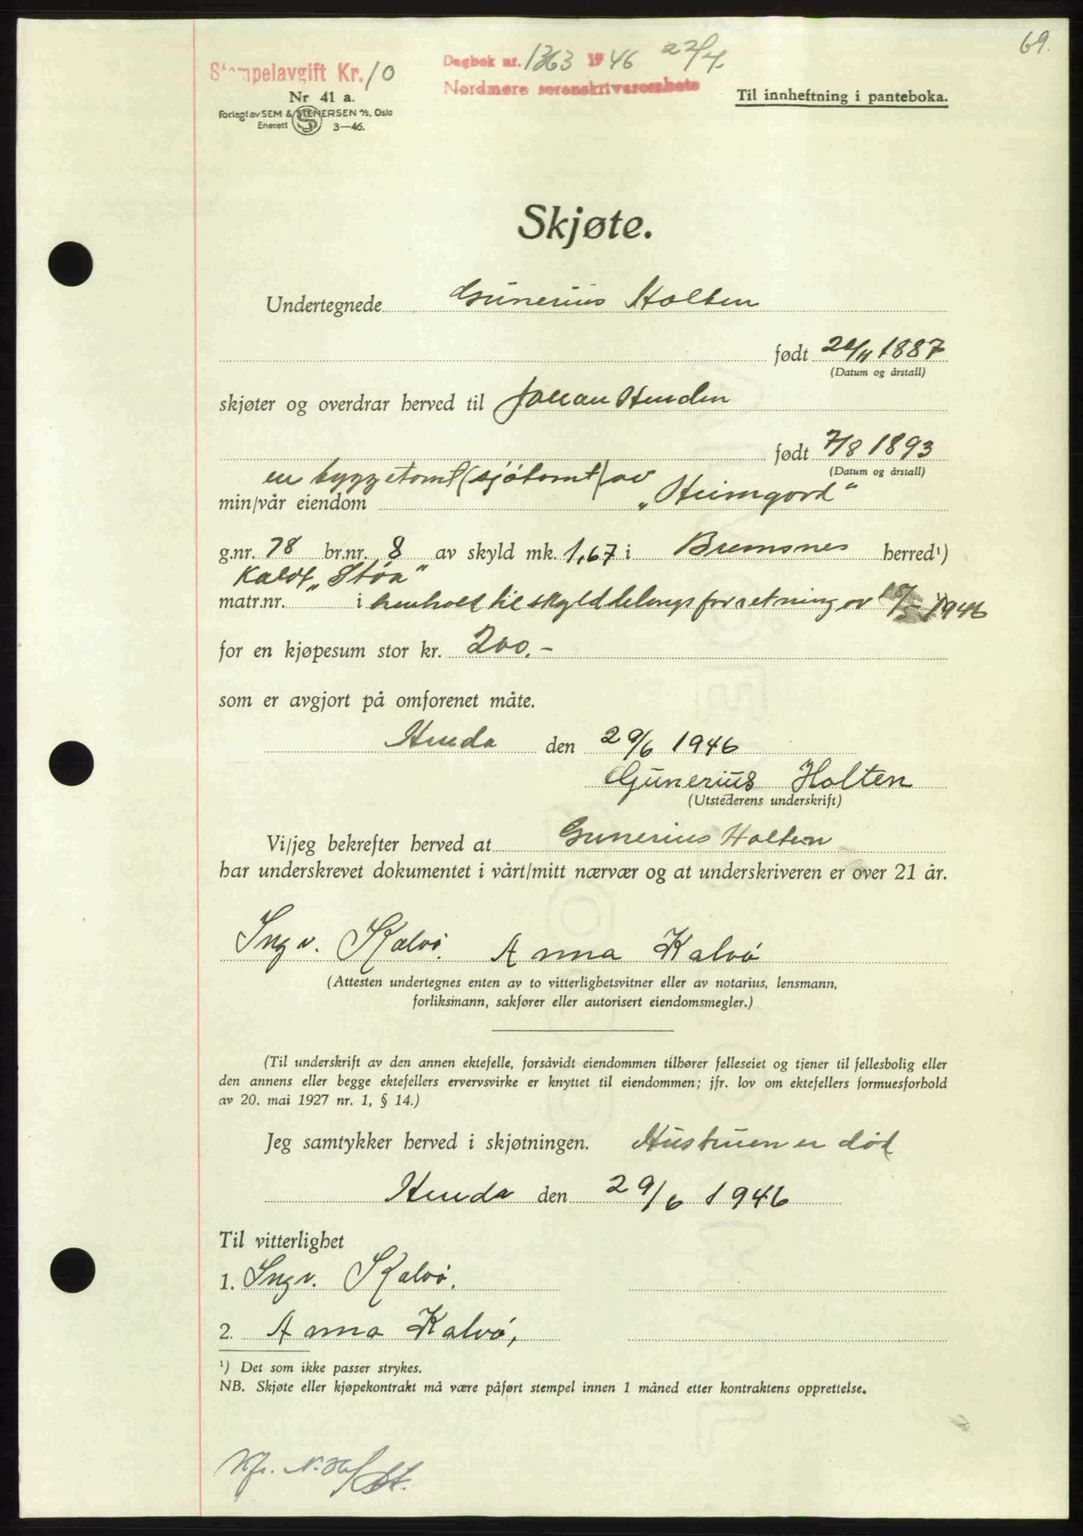 69.
Stempelavgift Kr. 10
Dagbok nr. 1363 1946 22/7.
Nordmøre sorenskriverembete
Nr 41 a.
Forlagt av SEM & STENERSEN A/S, Oslo
Enerett 3—46.
Til innheftning i panteboka.
Skjøte.
Undertegnede Gunerius Holten
født 1887
(Datum og årstall)
skjøter og overdrar herved til Johan Henden
født 7/8 1893
(Datum og årstall)
en byggetomt (sjøtomt) av
min/vår eiendom „Heimgard“
g.nr. 78 br.nr. 8 av skyld mk. 1,67 i Bremsnes herred¹)
Kaldt „Støa“
matr.nr. i henhold til skylddelings forretning av 1946
for en kjøpesum stor kr. 200.-
som er avgjort på omforenet måte.
Henda den 29/6 1946
Gunerius Holten
(Utstederens underskrift)
Vi/jeg bekrefter herved at Gunerius Holten
har underskrevet dokumentet i vårt/mitt nærvær og at underskriveren er over 21 år.
Ingv. Kalvø. Anna Kalvø
(Attesten undertegnes enten av to vitterlighetsvitner eller av notarius, lensmann,
forliksmann, sakfører eller autorisert eiendomsmegler.)
(Til underskrift av den annen ektefelle, forsåvidt eiendommen tilhører felleseiet og tjener til fellesbolig eller
den annens eller begge ektefellers ervervsvirke er knyttet til eiendommen; jfr. lov om ektefellers formuesforhold
av 20. mai 1927 nr. 1, § 14.)
Jeg samtykker herved i skjøtningen. Hustruen er død
Henda den 29/6 1946
Til vitterlighet
1. Ingv. Kalvø.
2. Anna Kalvø,
¹) Det som ikke passer strykes.
NB. Skjøte eller kjøpekontrakt må være påført stempel innen 1 måned etter kontraktens opprettelse.